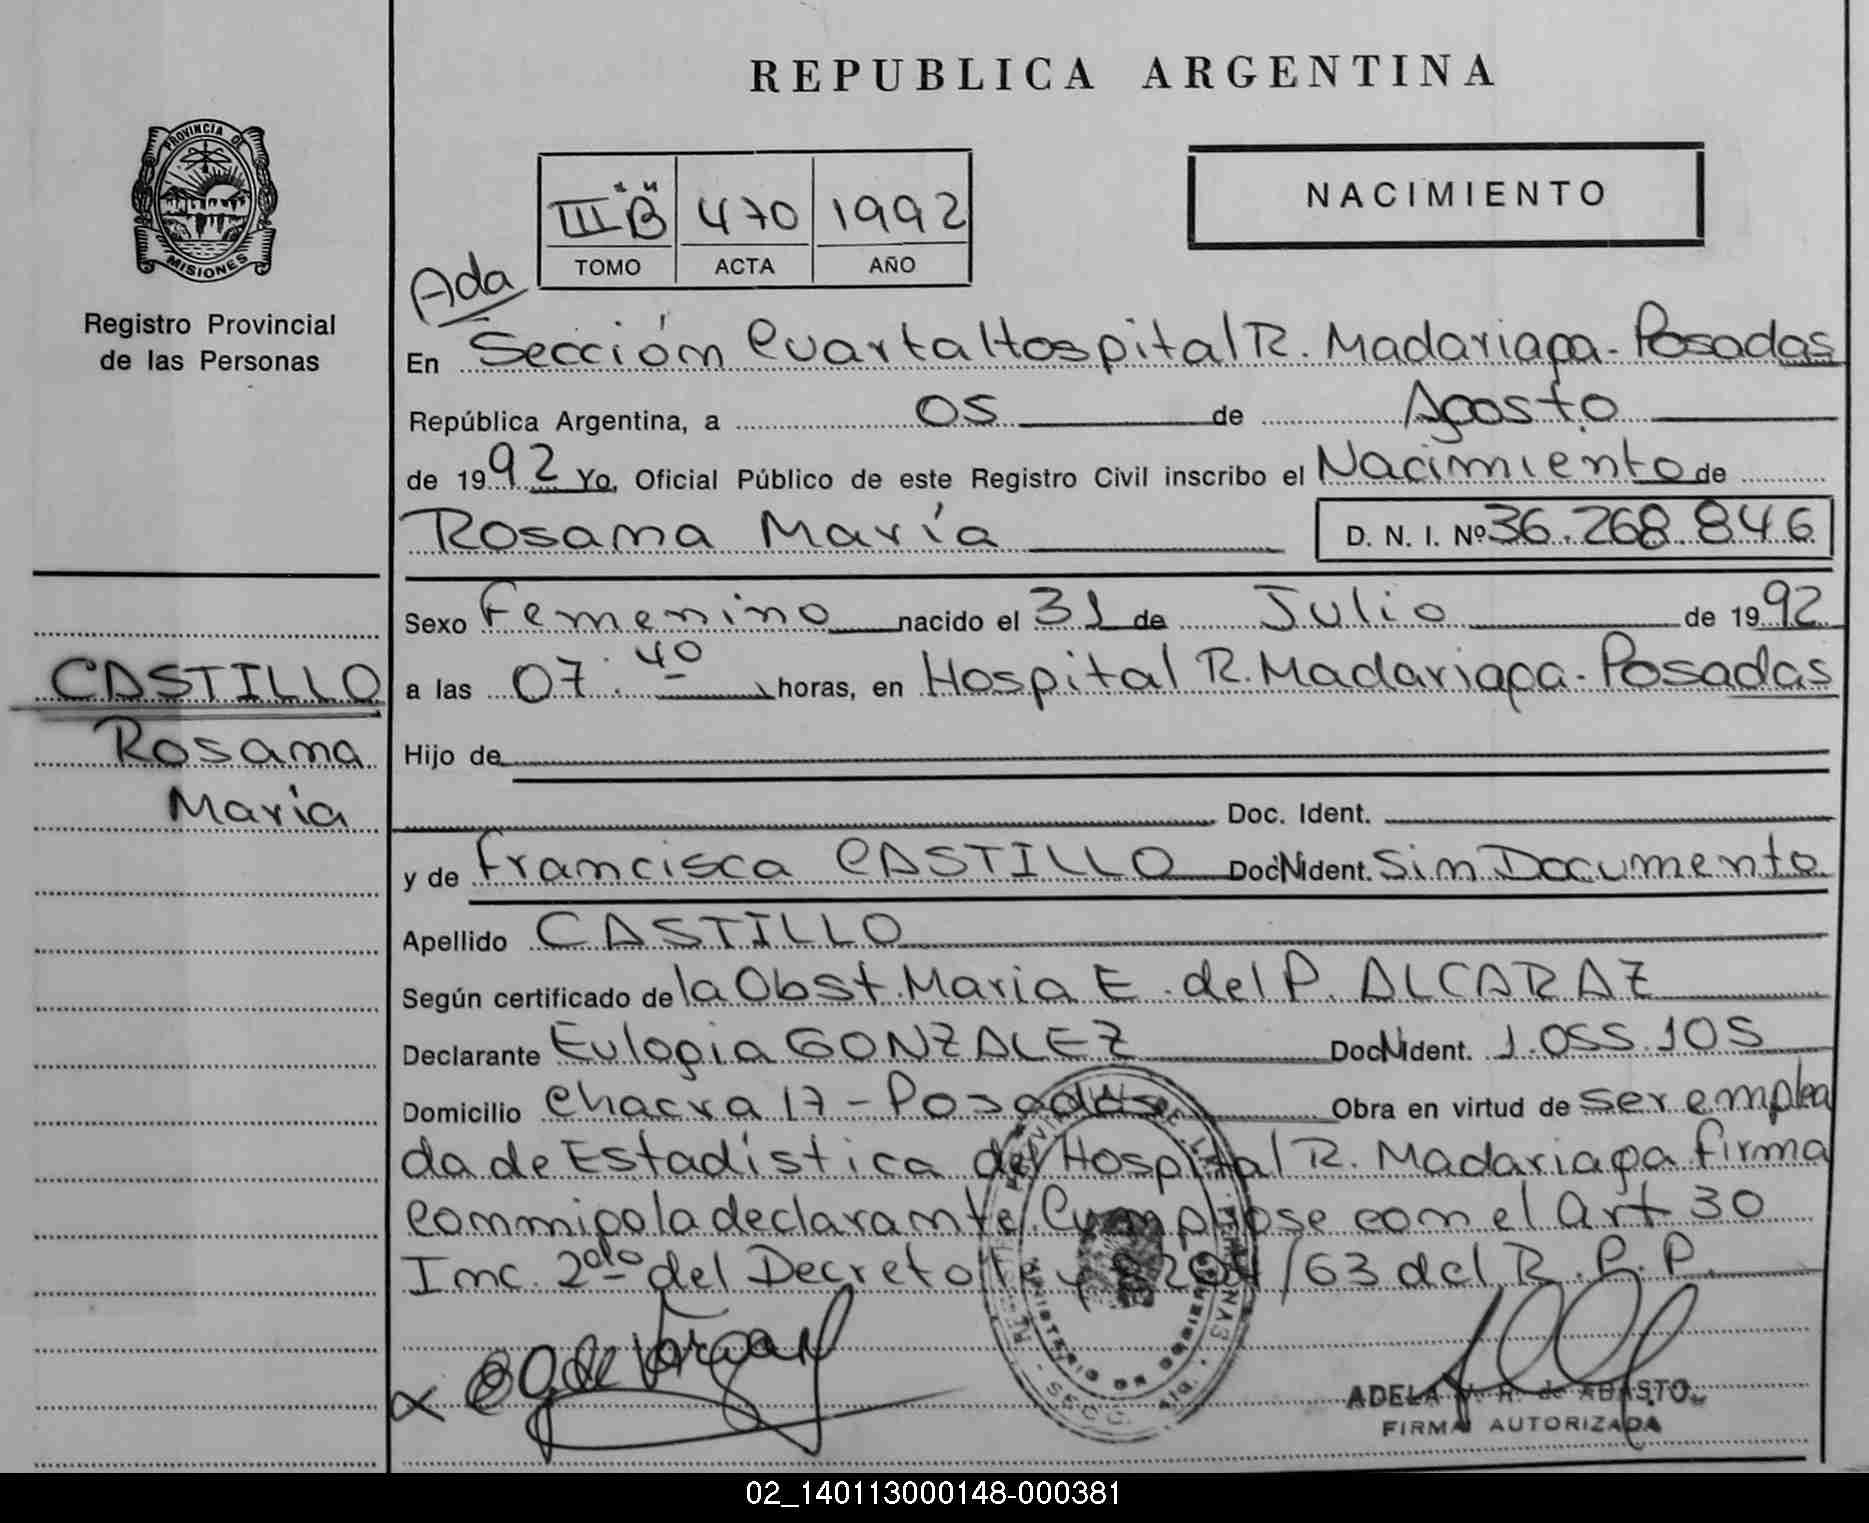 REPUBLICA ARGENTINA
PROVINCIA DE
MISIONES
Registro Provincial
de las Personas
III "B" 470 1992
TOMO ACTA AÑO
NACIMIENTO
Ada
En Sección Cuarta Hospital R. Madariaga - Posadas
República Argentina, a 05 de Agosto
de 1992 Yo, Oficial Público de este Registro Civil inscribo el Nacimiento de
Rosana María D. N. I. Nº 36.268.846
Sexo Femenino nacido el 31 de Julio de 1992
CASTILLO
Rosana
María
a las 07:40 horas, en Hospital R. Madariaga - Posadas
Hijo de
Doc. Ident.
y de Francisca CASTILLO Doc N Ident. Sin Documento
Apellido CASTILLO
Según certificado de la Obst. Maria E. del P. ALCARAZ
Declarante Eulogia GONZALEZ Doc N Ident. 1.055.105
Domicilio Chacra 17 - Posadas Obra en virtud de ser emplea
da de Estadística del Hospital R. Madariaga firma
conmigo la declarante. Cumplióse con el Art 30
Inc. 2do del Decreto Ley 8204/63 del R. P. P.
ADELA V. R. de ABASTO
FIRMA AUTORIZADA
02_140113000148-000381